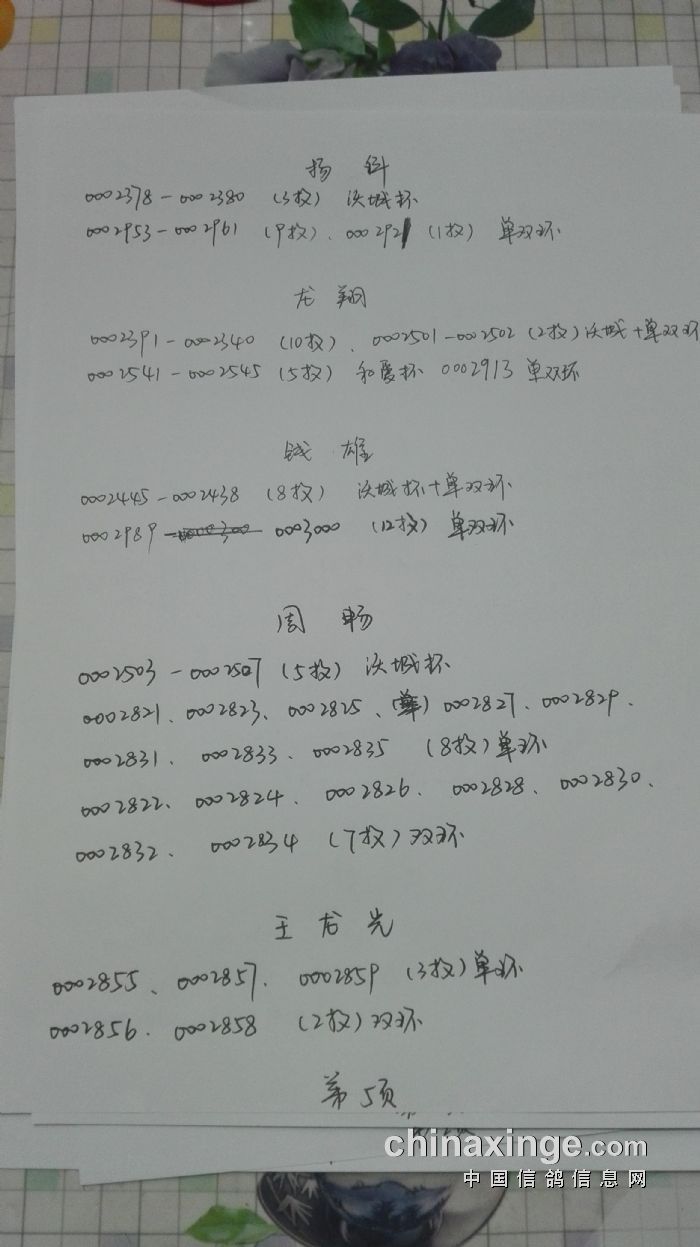 扬 科
0002378-0002380 (3枚) 汉城杯
0002953-0002961 (9枚)、0002921 (1枚) 单双环
龙 翔
0002391-0002340 (10枚)、0002501-0002502 (2枚) 汉城+单双环
0002541-0002545 (5枚) 和爱杯 0002913 单双环
钱 雄
0002445-0002438 (8枚) 汉城杯+单双环
0002989 0003000 (12枚) 单双环
周 畅
0002503-0002507 (5枚) 汉城杯
0002821、0002823、0002825、0002827、0002829、
0002831、0002833、0002835 (8枚) 单环
0002822、0002824、0002826、0002828、0002830、
0002832、0002834 (7枚) 双环
王 龙 先
0002855、0002857、0002859 (3枚) 单环
0002856、0002858 (2枚) 双环
第 5页
chinaxinge.com
中国信鸽信息网